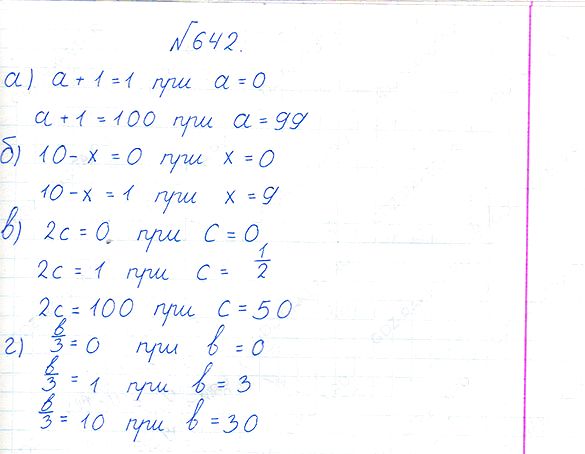 №642.
а) a + 1 = 1 при a = 0
a + 1 = 100 при a = 99
б) 10 - x = 0 при x = 0
10 - x = 1 при x = 9
в) 2c = 0 при c = 0
2c = 1 при c = 1/2
2c = 100 при c = 50
г) в/3 = 0 при в = 0
в/3 = 1 при в = 3
в/3 = 10 при в = 30